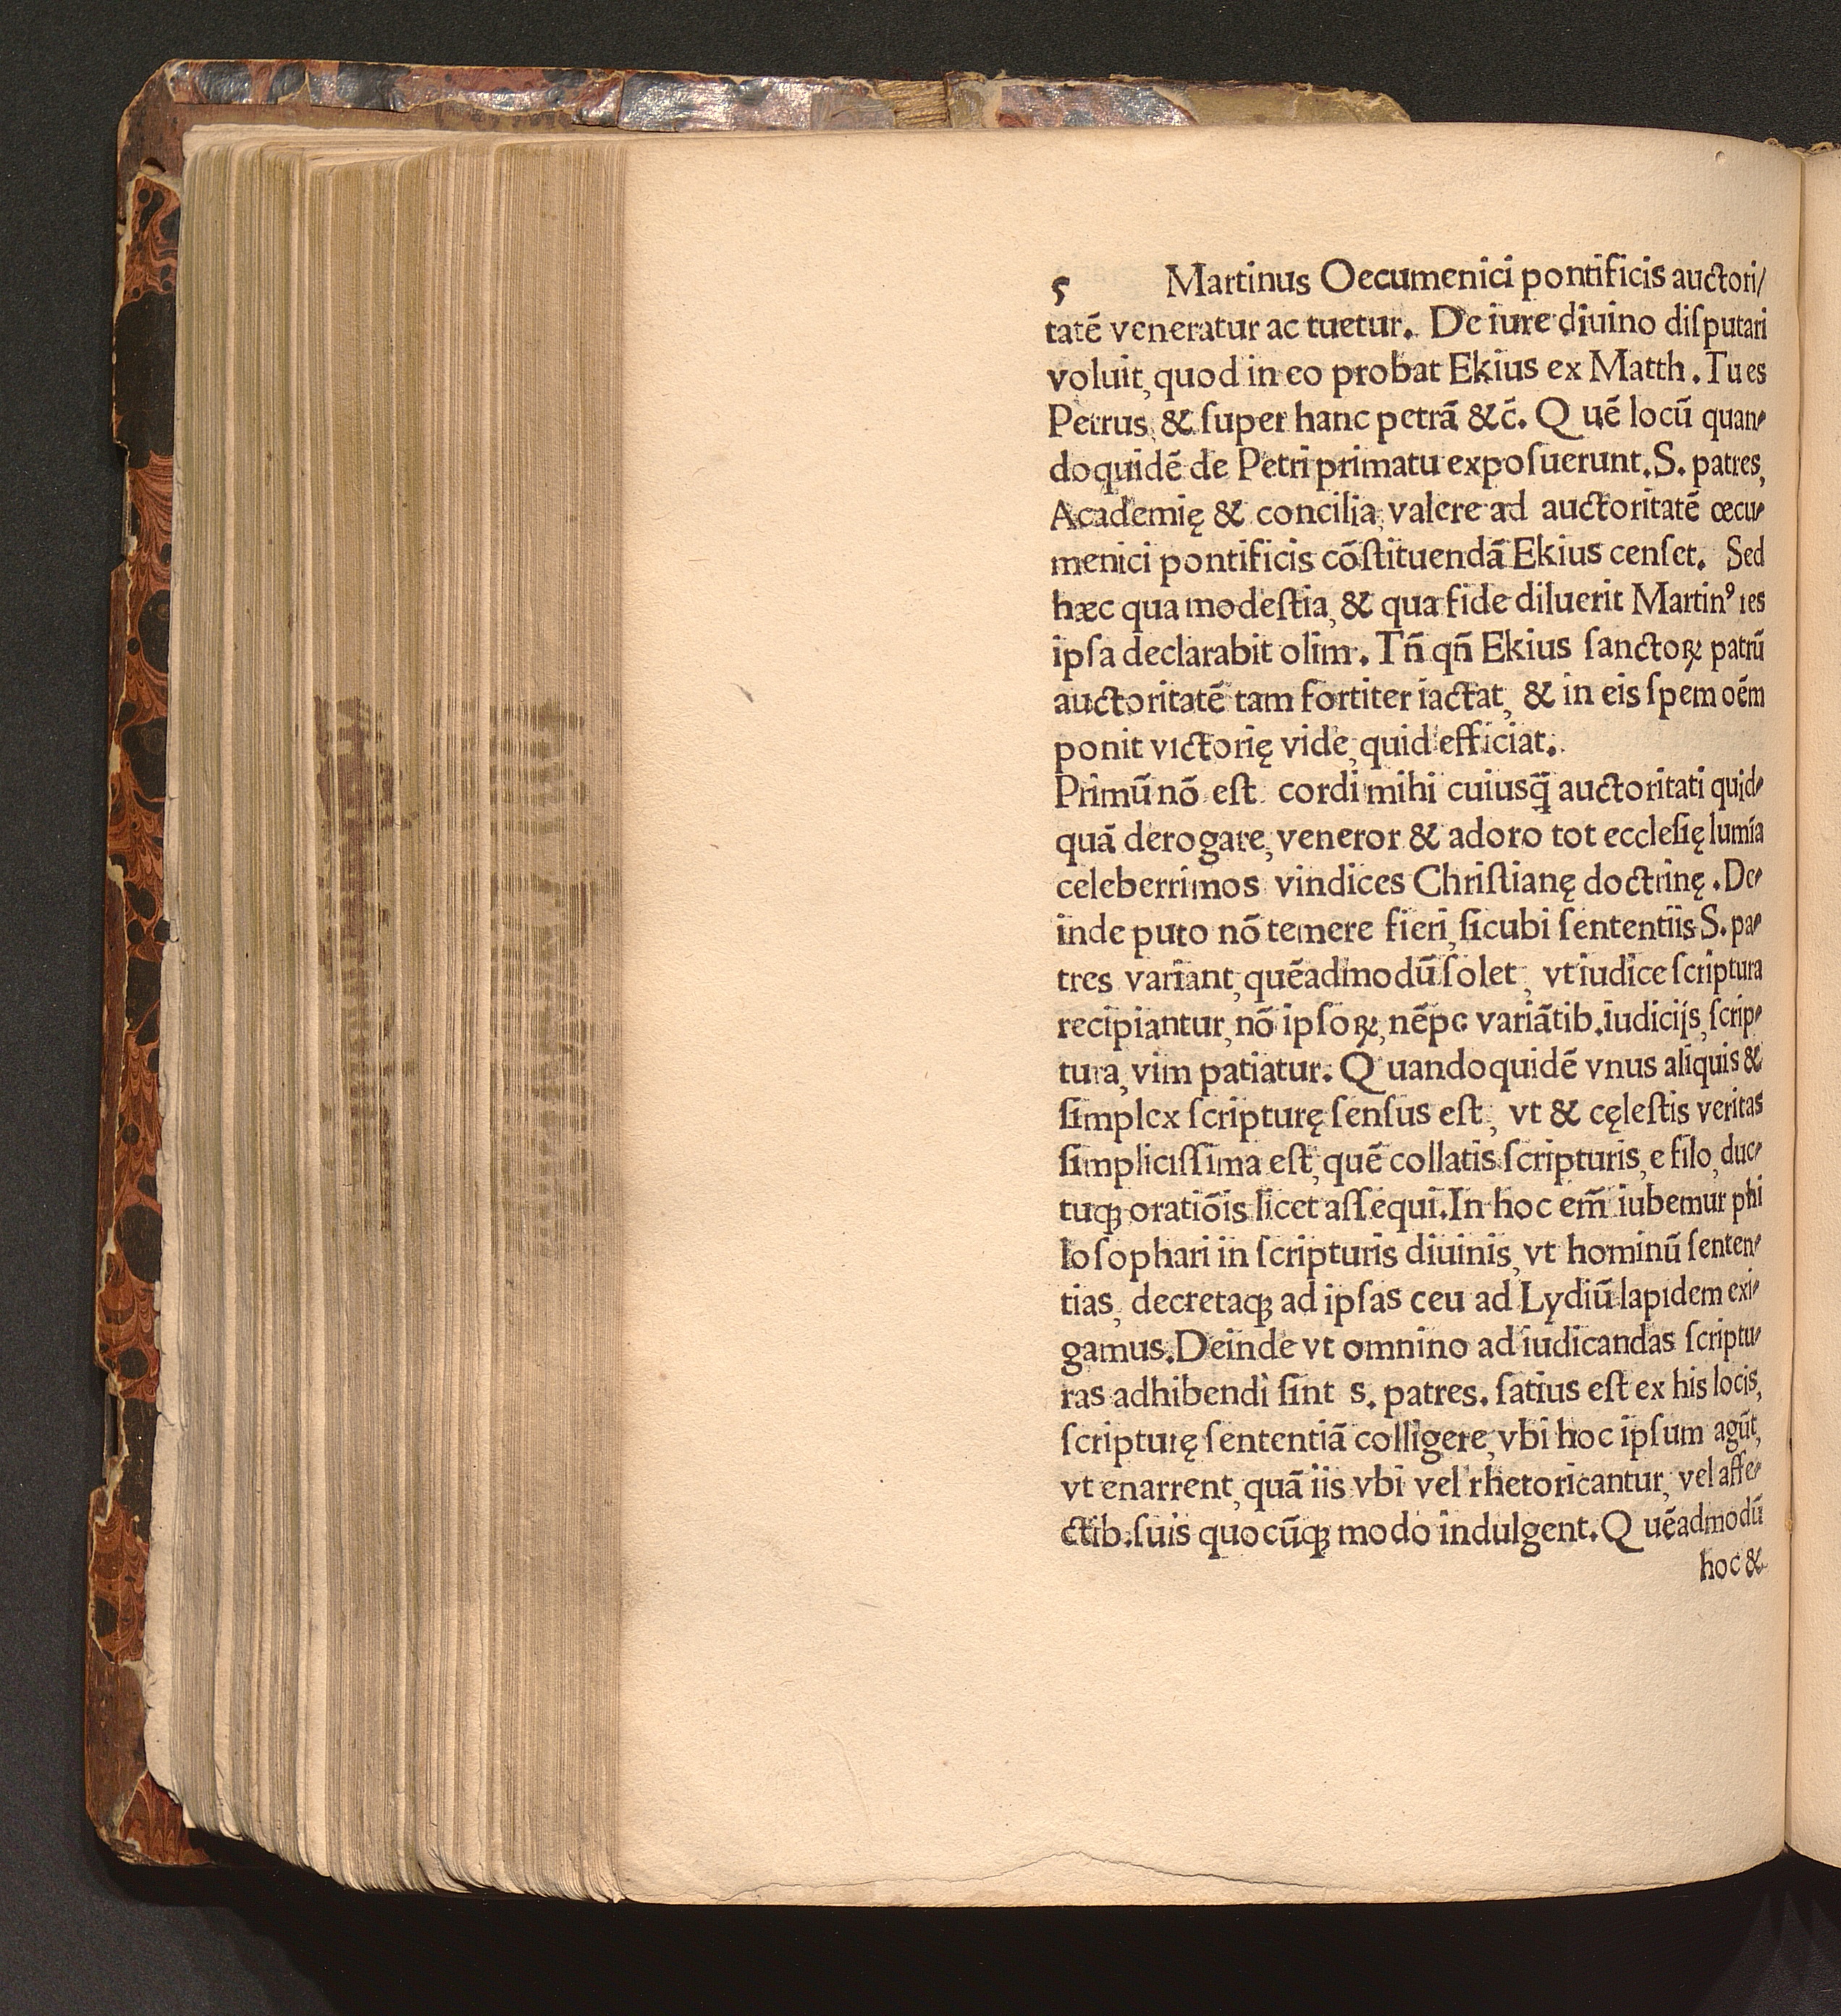 5 Martinus Oecumenici pontificis auctori/
tatē veneratur ac tuetur. De iure diuino diſputari
voluit, quod in eo probat Ekius ex Matth. Tu es
Petrus, & ſuper hanc petrā &c̄. Quē locū quan⸗
doquidē de Petri primatu expoſuerunt. S. patres,
Academię & concilia, valere ad auctoritatē œcu⸗
menici pontificis cōſtituendā Ekius cenſet. Sed
hæc qua modeſtia, & qua fide diluerit Martinꝰ res
ipſa declarabit olim. Tn̄ qn̄ Ekius ſanctoꝝ patrū
auctoritatē tam fortiter iactat, & in eis ſpem oēm
ponit victorię vide, quid efficiat.
Primū nō eſt cordi mihi cuiusq̄ auctoritati quid⸗
quā derogare, veneror & adoro tot eccleſię lumīa
celeberrimos vindices Chriſtianę doctrinę. De⸗
inde puto nō temere fieri, ſicubi ſententiis S. pa⸗
tres variant, quēadmodū ſolet, vt iudice ſcriptura
recipiantur, nō ipſoꝝ, nēpe variātib. iudicijs, ſcrip⸗
tura, vim patiatur. Quandoquidē vnus aliquis &
ſimplex ſcripturę ſenſus eſt, vt & cęleſtis veritas
ſimpliciſſima eſt, quē collatis ſcripturis, e filo, duc⸗
tuqꝫ oratiōis licet aſſequi. In hoc em̄ iubemur phi
loſophari in ſcripturis diuinis, vt hominū ſenten⸗
tias, decretaqꝫ ad ipſas ceu ad Lydiū lapidem exi⸗
gamus. Deinde vt omnino ad iudicandas ſcriptu⸗
ras adhibendi ſint s. patres. ſatius eſt ex his locis,
ſcripturę ſententiā colligere, vbi hoc ipſum agūt,
vt enarrent, quā iis vbi vel rhetoricantur, vel affe⸗
ctib. ſuis quocūqꝫ modo indulgent. Quēadmodū
hoc &